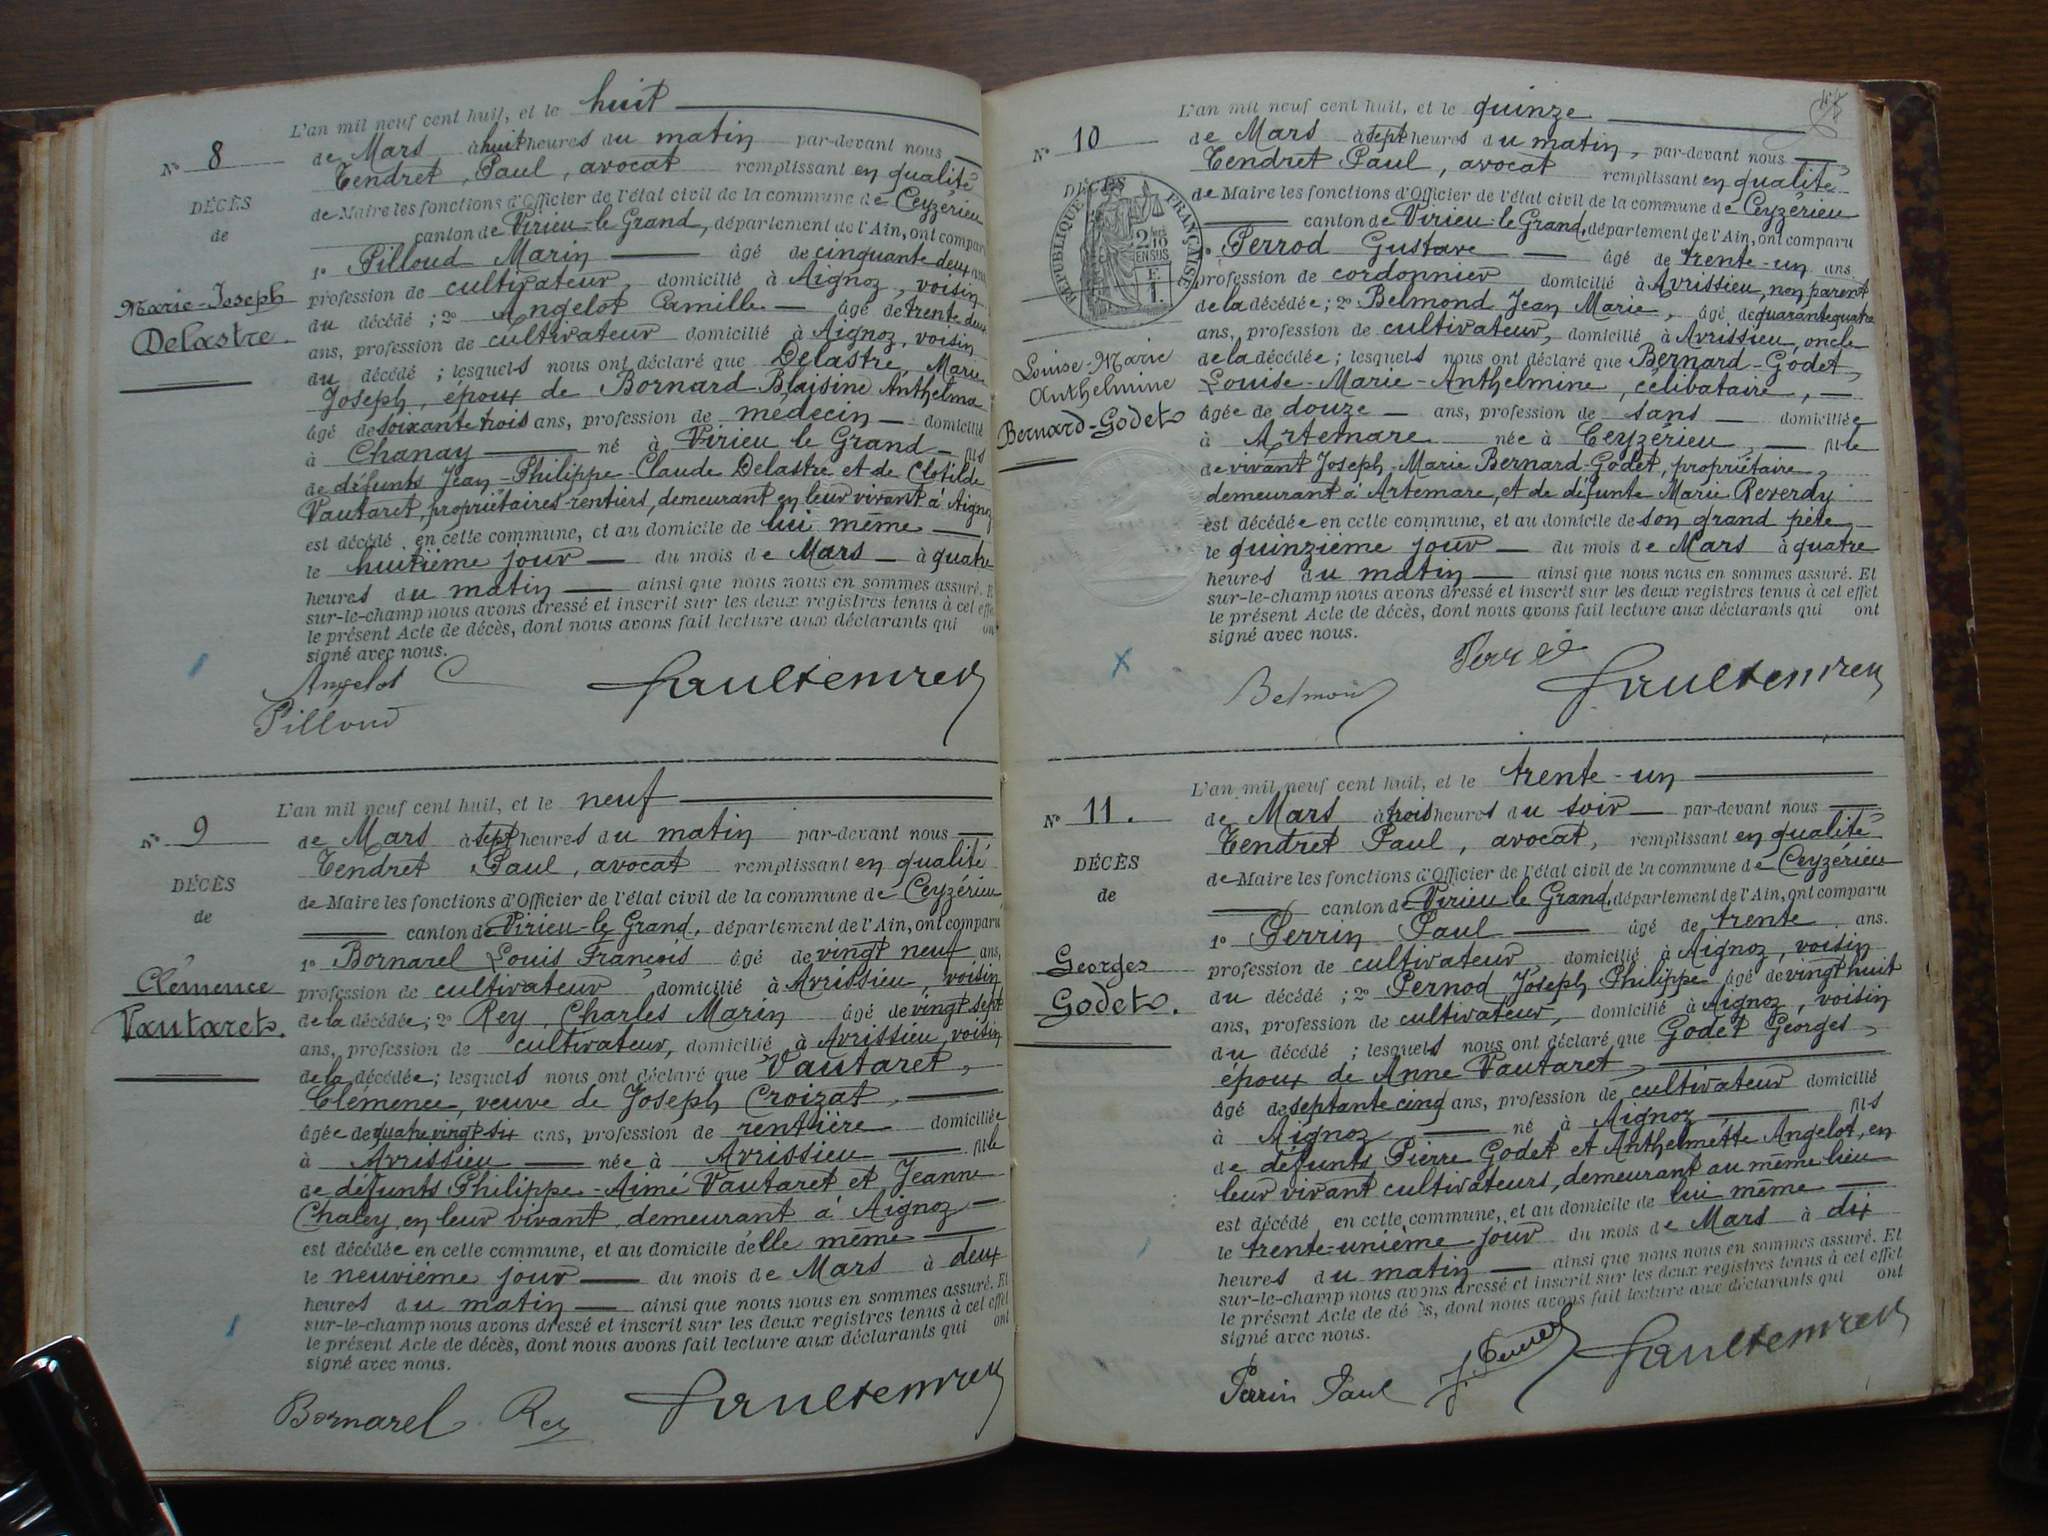 L'an mil neuf cent huit, et le huit
N° 8
de Mars à huit heures du matin par-devant nous
Tendret, Paul, avocat remplissant en qualité
DÉCÈS
de Maire les fonctions d'Officier de l'état civil de la commune de Ceyzérieu
de
canton de Virieu-le Grand, département de l'Ain, ont comparu
1° Pilloud Marin âgé de cinquante deux ans
Marie-Joseph
Delastre.
profession de cultivateur, domicilié à Aignoz, voisin
du décédé ; 2° Angelot Camille âgé de trente deux
ans, profession de cultivateur domicilié à Aignoz, voisin
du décédé ; lesquels nous ont déclaré que Delastre, Marie
Joseph, époux de Bornard Blaisine Anthelma
âgé de soixante trois ans, profession de médecin domicilié
à Chanay né à Virieu le Grand fils
de défunts Jean-Philippe-Claude Delastre et de Clotilde
Vautaret, propriétaires-rentiers, demeurant en leur vivant à Aignoz
est décédé en cette commune, et au domicile de lui même
le huitième jour du mois de Mars à quatre
heures du matin ainsi que nous nous en sommes assuré. Et
sur-le-champ nous avons dressé et inscrit sur les deux registres tenus à cet effet
le présent Acte de décès, dont nous avons fait lecture aux déclarants qui ont
signé avec nous.
Angelot C
Pilloud
L'an mil neuf cent huit, et le neuf
N° 9
de Mars à sept heures du matin par-devant nous
Tendret Paul, avocat remplissant en qualité
DÉCÈS
de Maire les fonctions d'Officier de l'état civil de la commune de Ceyzérieu
de
canton de Virieu-le Grand, département de l'Ain, ont comparu
1° Bornarel Louis François âgé de vingt neuf ans,
Clémence
Vautaret.
profession de cultivateur, domicilié à Avrissieu, voisin
de la décédée; 2° Rey, Charles Marin âgé de vingt sept
ans, profession de cultivateur, domicilié à Avrissieu, voisin
de la décédée; lesquels nous ont déclaré que Vautaret,
Clémence, veuve de Joseph Croizat,
âgée de quatre vingt six ans, profession de rentière domiciliée
à Avrissieu née à Avrissieu fille
de défunts Philippe-Aimé Vautaret et Jeanne
Chaley, en leur vivant demeurant à Aignoz
est décédée en cette commune, et au domicile d'elle même
le neuvième jour du mois de Mars à deux
heures du matin ainsi que nous nous en sommes assuré. Et
sur-le-champ nous avons dressé et inscrit sur les deux registres tenus à cet effet
le présent Acte de décès, dont nous avons fait lecture aux déclarants qui ont
signé avec nous.
Bornarel Rey
L'an mil neuf cent huit, et le quinze
N° 10
de Mars à sept heures du matin, par-devant nous
Tendret Paul, avocat remplissant en qualité
DÉCÈS
RÉPUBLIQUE FRANÇAISE
de Maire les fonctions d'Officier de l'état civil de la commune de Ceyzérieu
canton de Virieu-le Grand, département de l'Ain, ont comparu
Perrod Gustave âgé de trente-un ans
profession de cordonnier domicilié à Avrissieu, non parent
de la décédée; 2° Belmond Jean Marie, âgé de quarante quatre
ans, profession de cultivateur, domicilié à Avrissieu, oncle
Louise-Marie
Anthelmine
Bernard-Godet
de la décédée; lesquels nous ont déclaré que Bernard-Godet,
Louise-Marie-Anthelmine, célibataire,
âgée de douze ans, profession de sans domiciliée
à Artemare née à Ceyzérieu, fille
de vivant Joseph-Marie Bernard-Godet, propriétaire,
demeurant à Artemare, et de défunte Marie Reverdy
est décédée en cette commune, et au domicile de son grand père,
le quinzième jour du mois de Mars à quatre
heures du matin ainsi que nous nous en sommes assuré. Et
sur-le-champ nous avons dressé et inscrit sur les deux registres tenus à cet effet
le présent Acte de décès, dont nous avons fait lecture aux déclarants qui ont
signé avec nous.
Perrod
Belmond
L'an mil neuf cent huit, et le trente-un
N° 11.
de Mars à trois heures du soir par-devant nous
Tendret Paul, avocat, remplissant en qualité
DÉCÈS
de Maire les fonctions d'Officier de l'état civil de la commune de Ceyzérieu
de
canton de Virieu-le Grand, département de l'Ain, ont comparu
1° Perrin Paul âgé de trente ans.
Georges
Godet.
profession de cultivateur, domicilié à Aignoz, voisin
du décédé ; 2° Pernod Joseph Philippe âgé de vingt huit
ans, profession de cultivateur, domicilié à Aignoz, voisin
du décédé ; lesquels nous ont déclaré que Godet Georges,
époux de Anne Vautaret,
âgé de septante cinq ans, profession de cultivateur domicilié
à Aignoz né à Aignoz fils
de défunts Pierre Godet et Anthelmette Angelot, en
leur vivant cultivateurs, demeurant au même lieu
est décédé en cette commune, et au domicile de lui même
le trente-unième jour du mois de Mars à dix
heures du matin ainsi que nous nous en sommes assuré. Et
sur-le-champ nous avons dressé et inscrit sur les deux registres tenus à cet effet
le présent Acte de décès, dont nous avons fait lecture aux déclarants qui ont
signé avec nous.
Perrin Paul